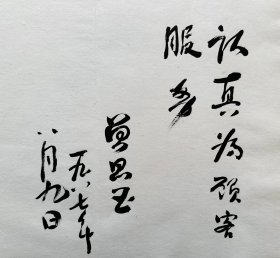 认真为顾客
服务
曾思玉
一九八七年
八月九日